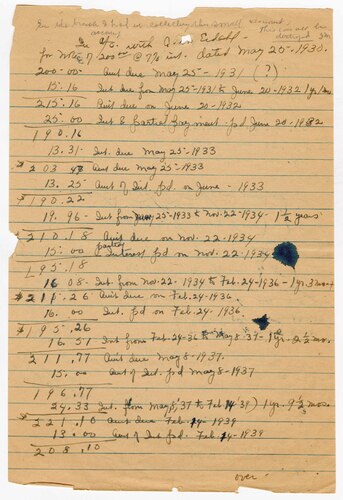 In the
collecting this small
account
In a/c. with
for Note of 200.00 @ 7% int. dated May 25-1930.
200.00 Amt due May 25-1931 (?)
15.16 Int. due for May 25-1931 to June 20-1932 1 yr. 1 mo.
215.16 Amt due on June 20-1932
25.00 Int & partial payment pd June 20-1932
190.16
13.31 Int. due May 25-1933
203.47 Amt due May 25-1933
13.25 Amt of Int. pd. on June - 1933
190.22
19.96 Int from May 25-1933 to Nov. 22-1934 - 1 1/2 years
210.18 Amt due on Nov. 22-1934
15.00 Interest pd on Nov. 22-1934
195.18
16.08 Int. from Nov. 22-1934 to Feb. 24-1936 - 1 yr. 3 mo.
211.26 Amt due on Feb. 24-1936
16.00 Int. pd on Feb. 24-1936.
195.26
16.51 Int from Feb. 24-36 to May 8-37 - 1 yr. 2 1/2 mo.
211.77 Amt due May 8-1937.
15.00 Amt of Int. pd May 8-1937
196.77
24.33 Int. from May 8, '37 to Feb 14 '39) 1 yr. 9 1/2 mos.
221.10 Amt due Feb 14-1939
13.00 Amt of Int pd. Feb. 14-1939
208.10
over